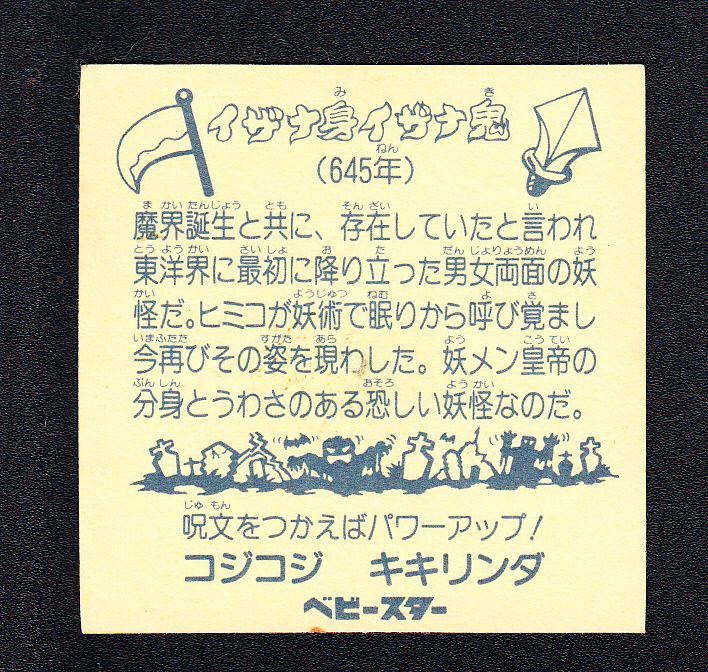 イザナ身イザナ鬼
(645年)
魔界誕生と共に、存在していたと言われ
東洋界に最初に降り立った男女両面の妖
怪だ。ヒミコが妖術で眠りから呼び覚まし
今再びその姿を現わした。妖メン皇帝の
分身とうわさのある恐しい妖怪なのだ。
呪文をつかえばパワーアップ！
コジコジ　キキリンダ
ベビースター